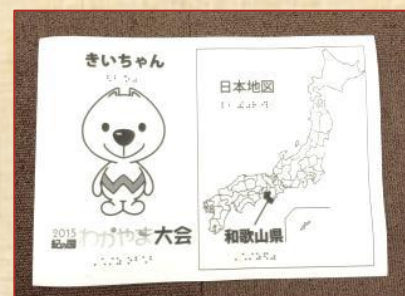 きいちゃん
2015
紀の国
わかやま大会
日本地図
和歌山県